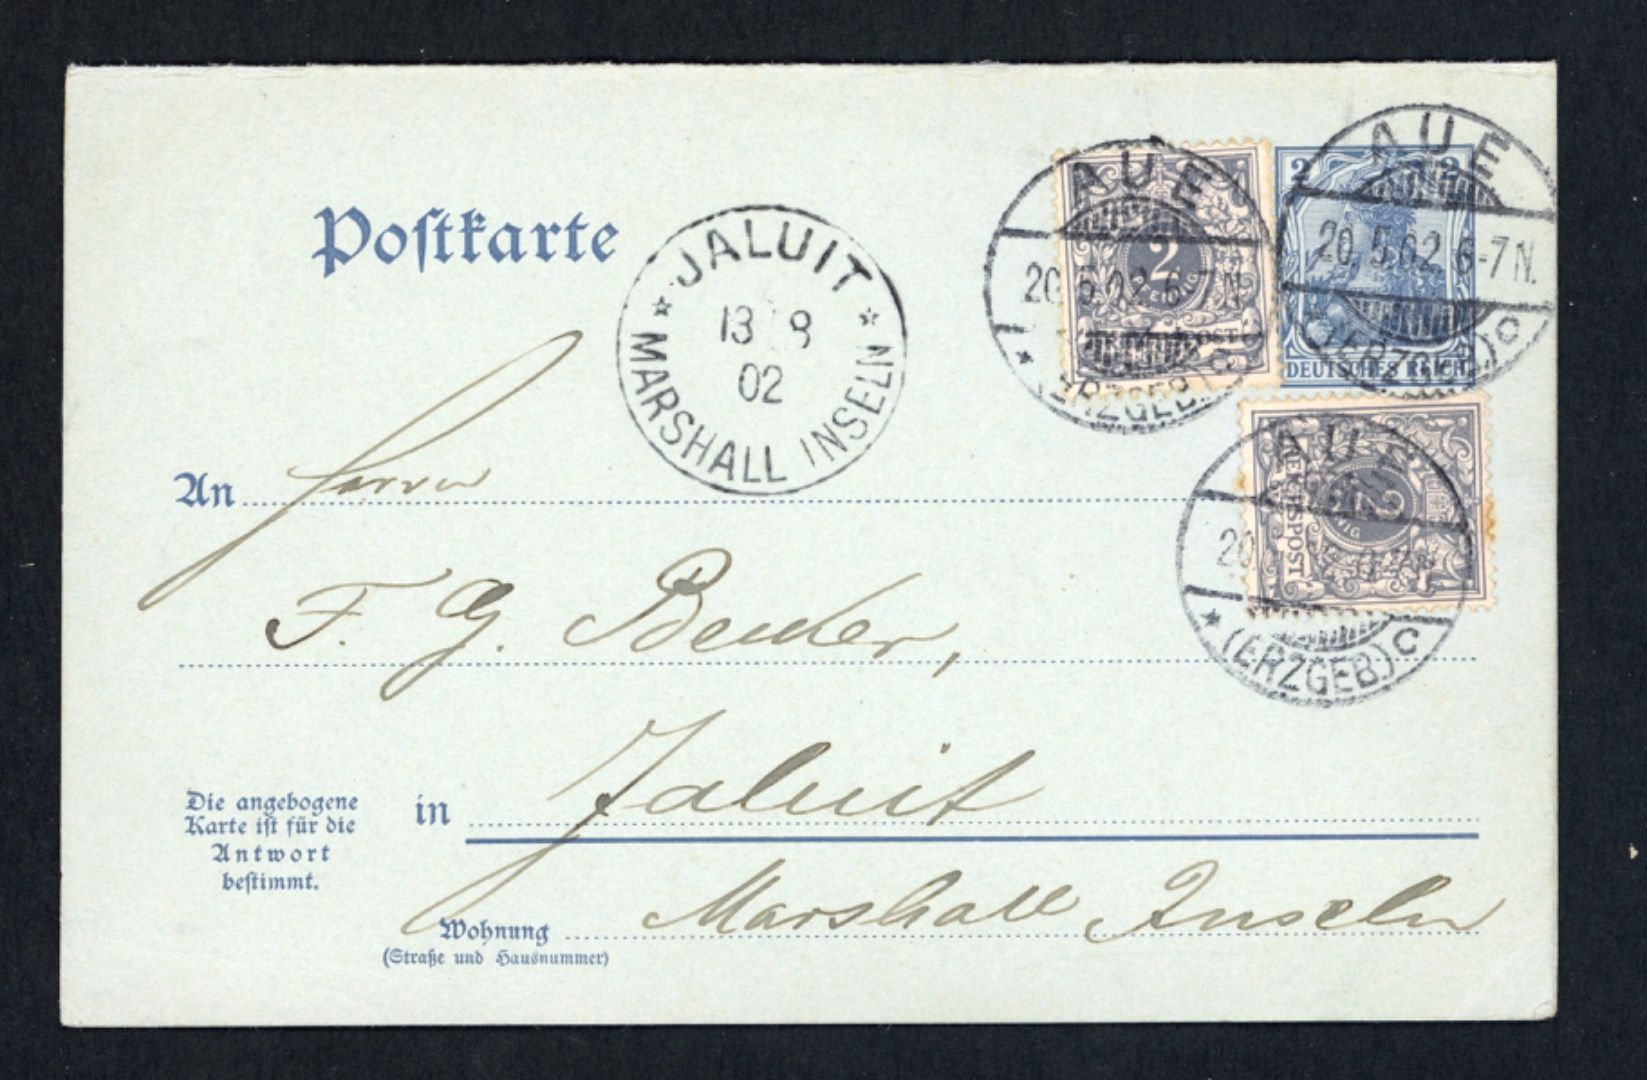 Postkarte
JALUIT
13 8
02
MARSHALL INSELN
AUE
20.5.02.6-7N.
(ERZGEB.) C
2
PFENNIG
REICHSPOST
2 2
DEUTSCHES REICH
AUE
20.5.02.6-7N.
(ERZGEB.) C
AUE
20
(ERZGEB.) C
2
REICHSPOST
An Herrn
F. G. Bender,
Die angebogene
Karte ist für die
Antwort
bestimmt.
in Jaluit
Wohnung Marshall Inseln
(Straße und Hausnummer)